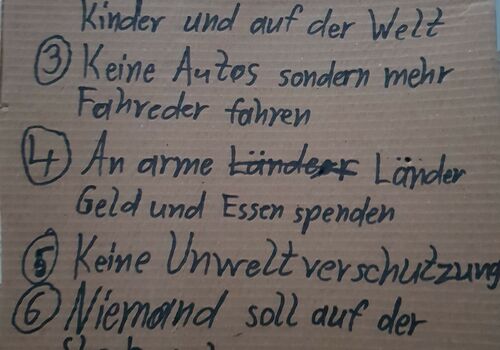 Kinder und auf der Welt
3 Keine Autos sondern mehr
Fahreder fahren
4 An arme Länder Länder
Geld und Essen spenden
5 Keine Unweltverschutzung
6 Niemand soll auf der